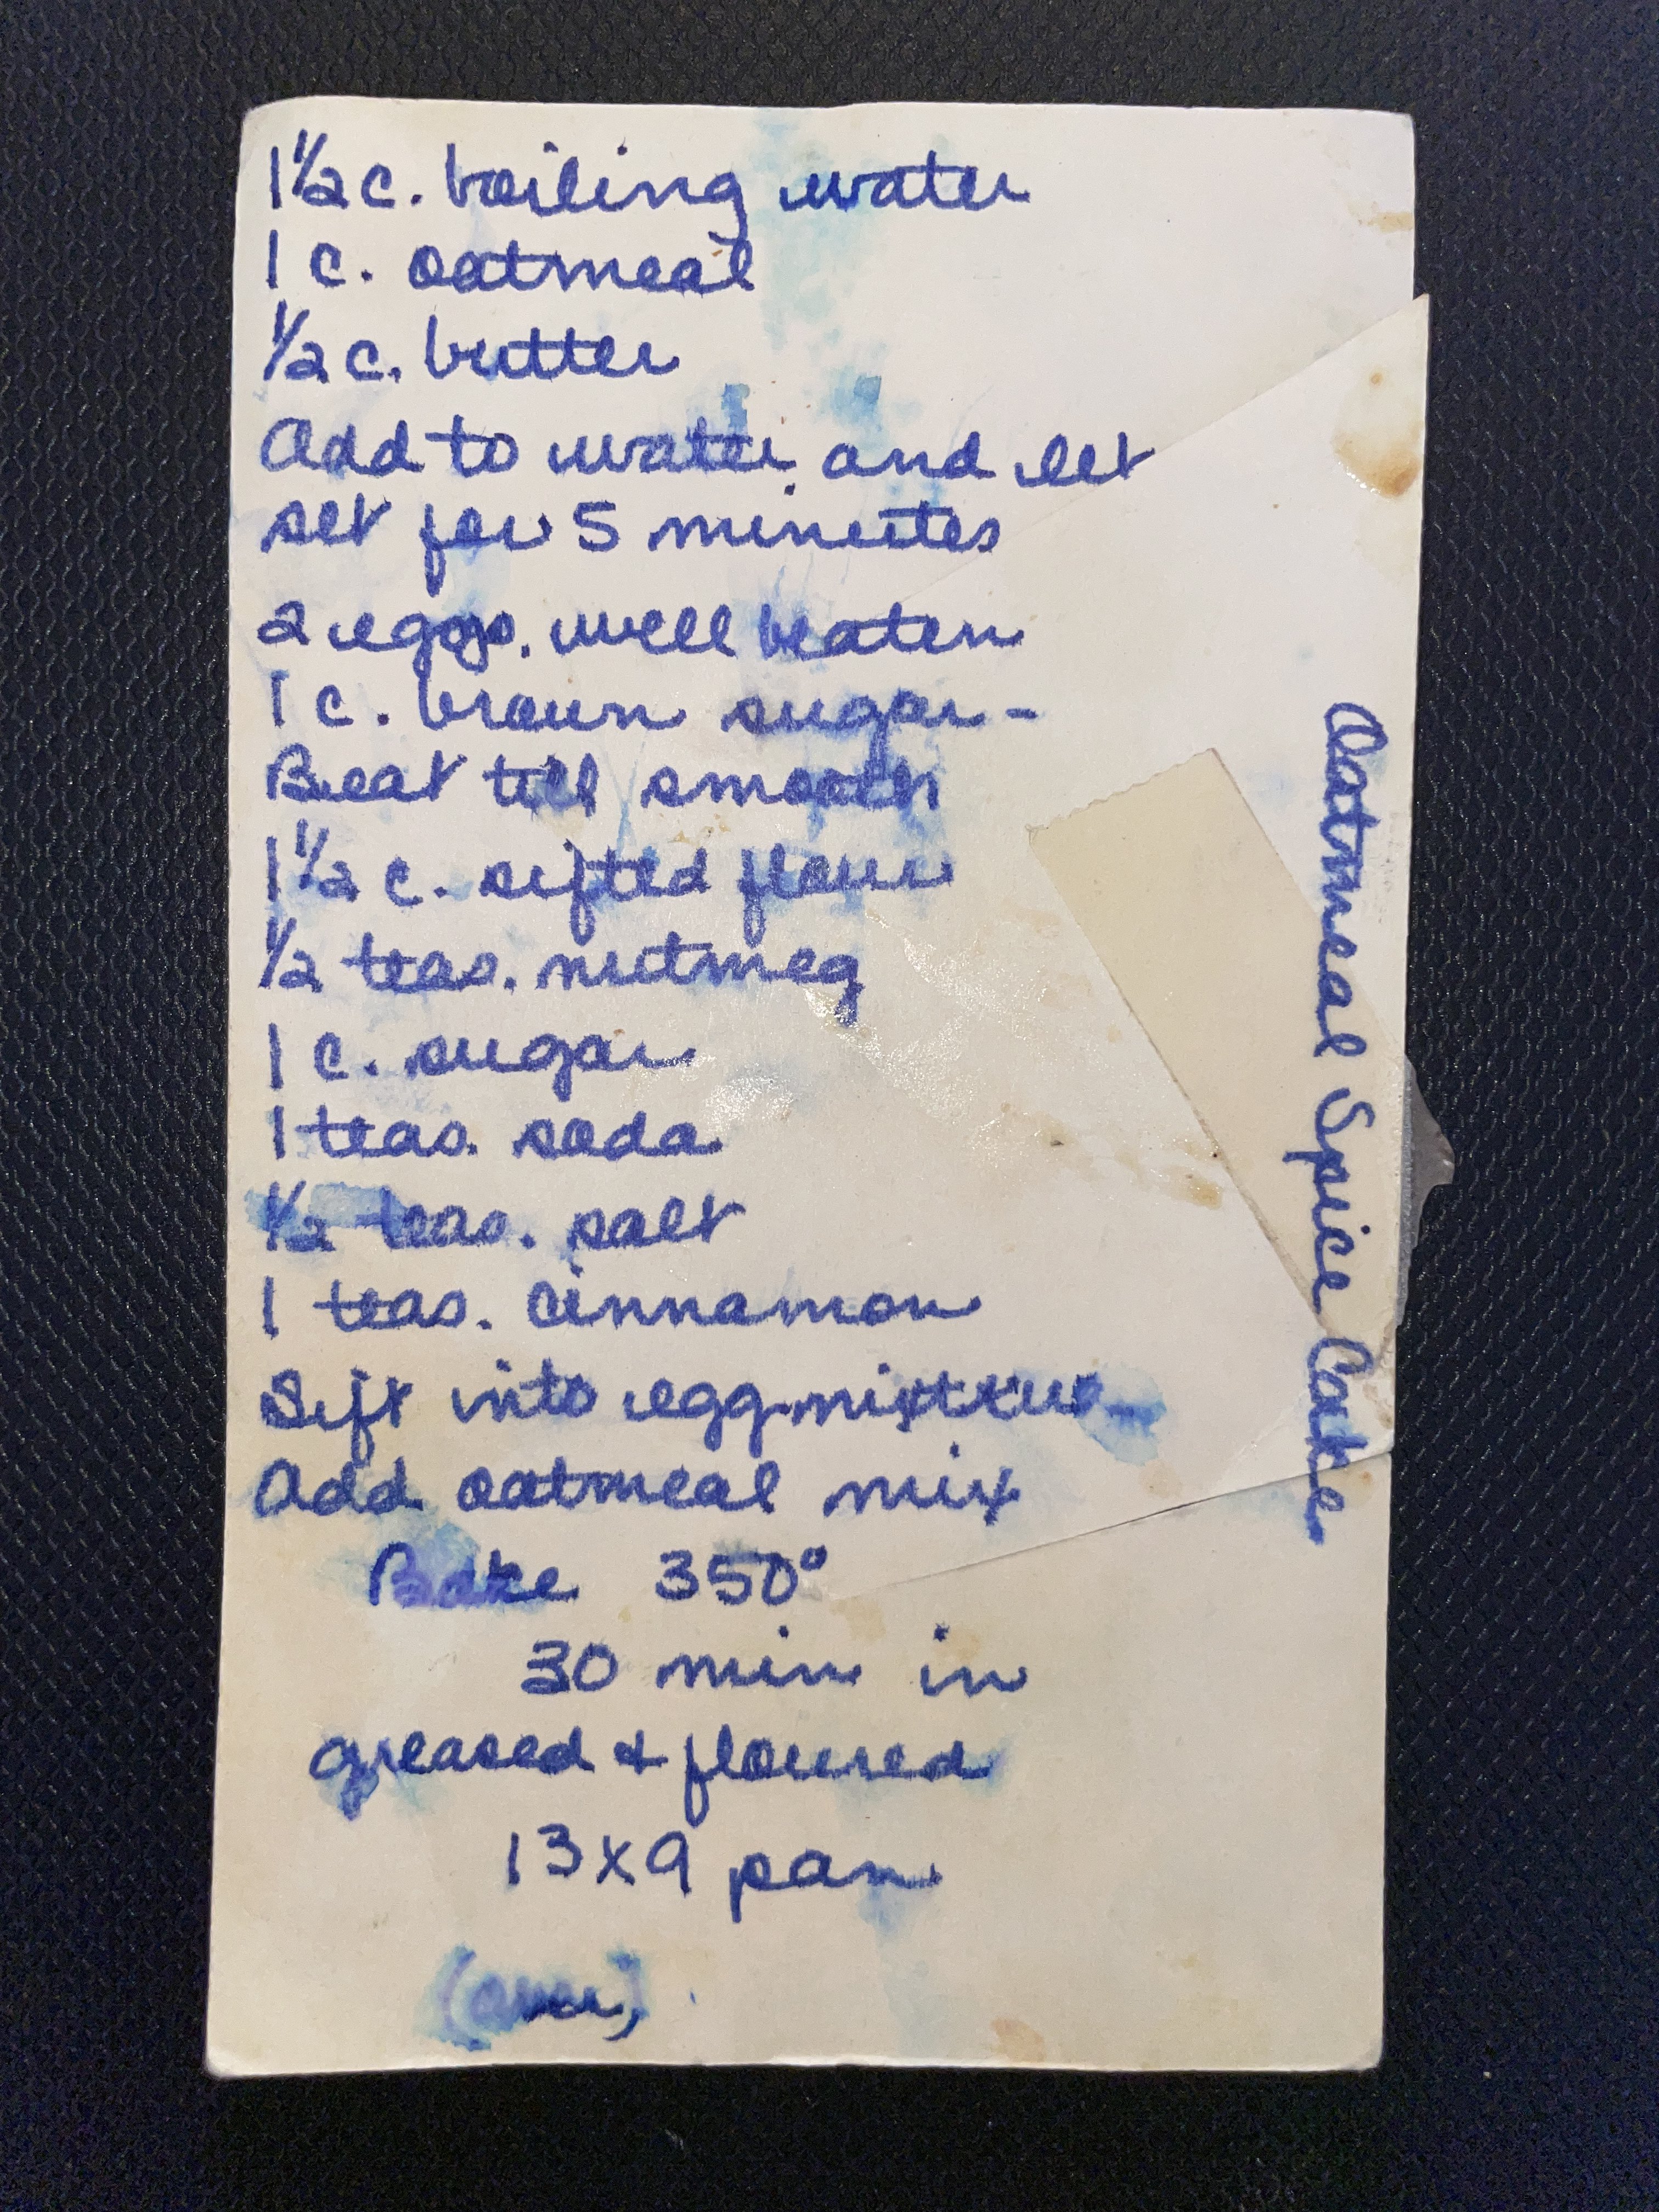 1 1/2 c. boiling water
1 c. oatmeal
1/2 c. butter
Add to water and let
set for 5 minutes
2 eggs. well beaten
1 c. brown sugar -
Beat till smooth
1 1/2 c. sifted flour
1/2 teas. nutmeg
1 c. sugar
1 teas. soda
1/2 teas. salt
1 teas. cinnamon
Sift into egg mixture
Add oatmeal mix
Bake 350°
30 min in
greased & floured
13x9 pan
(over)
Oatmeal Spice Cake